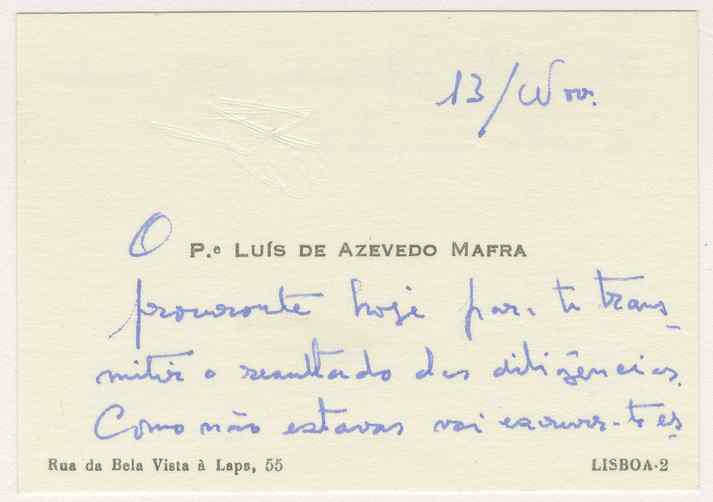 13/Nov.
O
P.e LUÍS DE AZEVEDO MAFRA
procurou-te hoje para te trans-
mitir o resultado das diligências.
Como não estavas vai escrever-te es-
Rua da Bela Vista à Lapa, 55 LISBOA-2